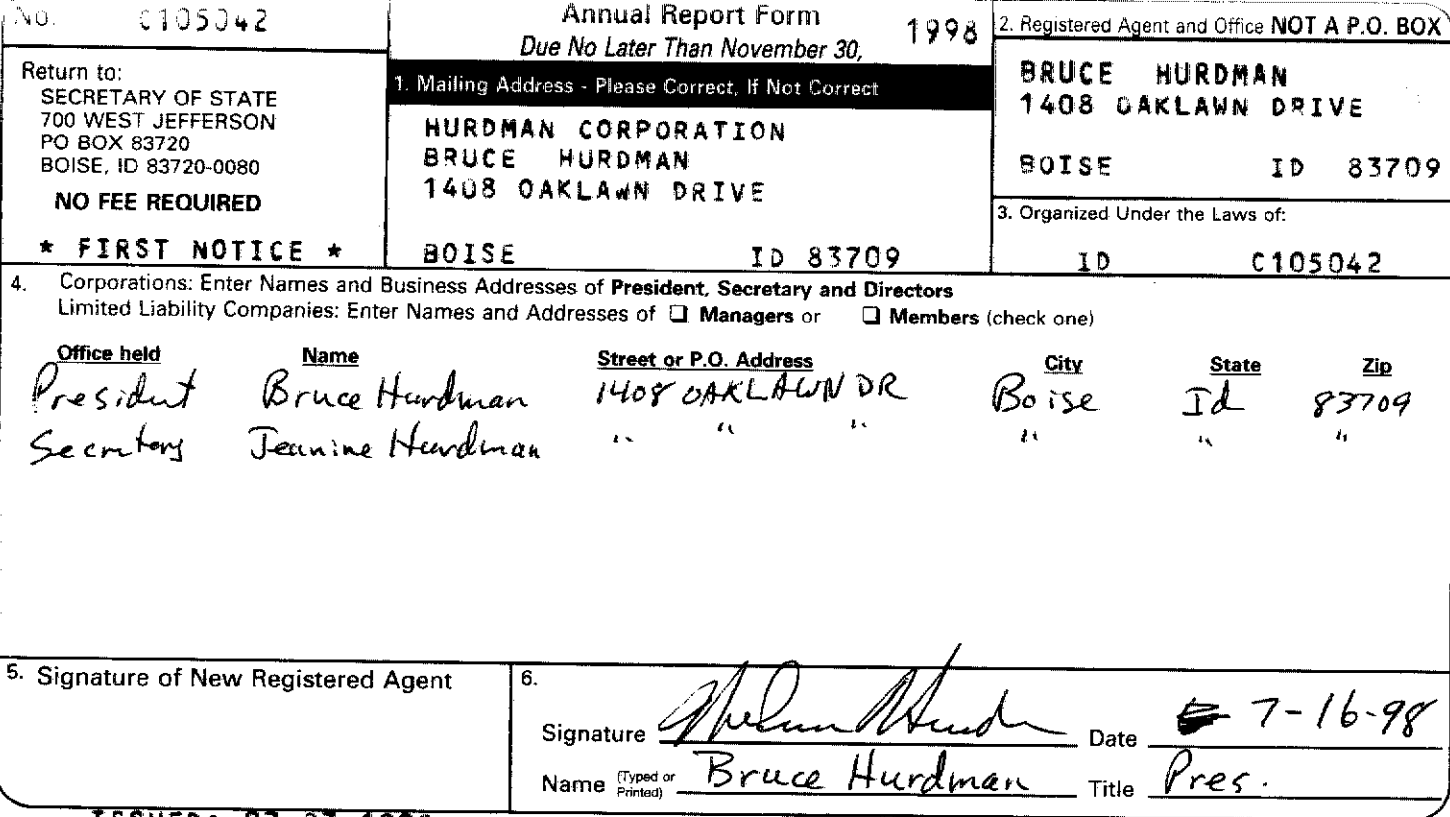 NO. C105042
Return to:
SECRETARY OF STATE
700 WEST JEFFERSON
PO BOX 83720
BOISE, ID 83720-0080
NO FEE REQUIRED
* FIRST NOTICE *
Annual Report Form 1998
Due No Later Than November 30,
1. Mailing Address - Please Correct, If Not Correct
HURDMAN CORPORATION
BRUCE HURDMAN
1408 OAKLAWN DRIVE
BOISE ID 83709
2. Registered Agent and Office NOT A P.O. BOX
BRUCE HURDMAN
1408 OAKLAWN DRIVE
BOISE ID 83709
3. Organized Under the Laws of:
ID C105042
4. Corporations: Enter Names and Business Addresses of President, Secretary and Directors
Limited Liability Companies: Enter Names and Addresses of ❑ Managers or ❑ Members (check one)
Office held Name Street or P.O. Address City State Zip
President Bruce Hurdman 1408 OAKLAWN DR Boise Id 83709
Secretary Jeanine Hurdman " " " " " "
5. Signature of New Registered Agent
6.
Signature Date 7-16-98
Name (Typed or Printed) Bruce Hurdman Title Pres.